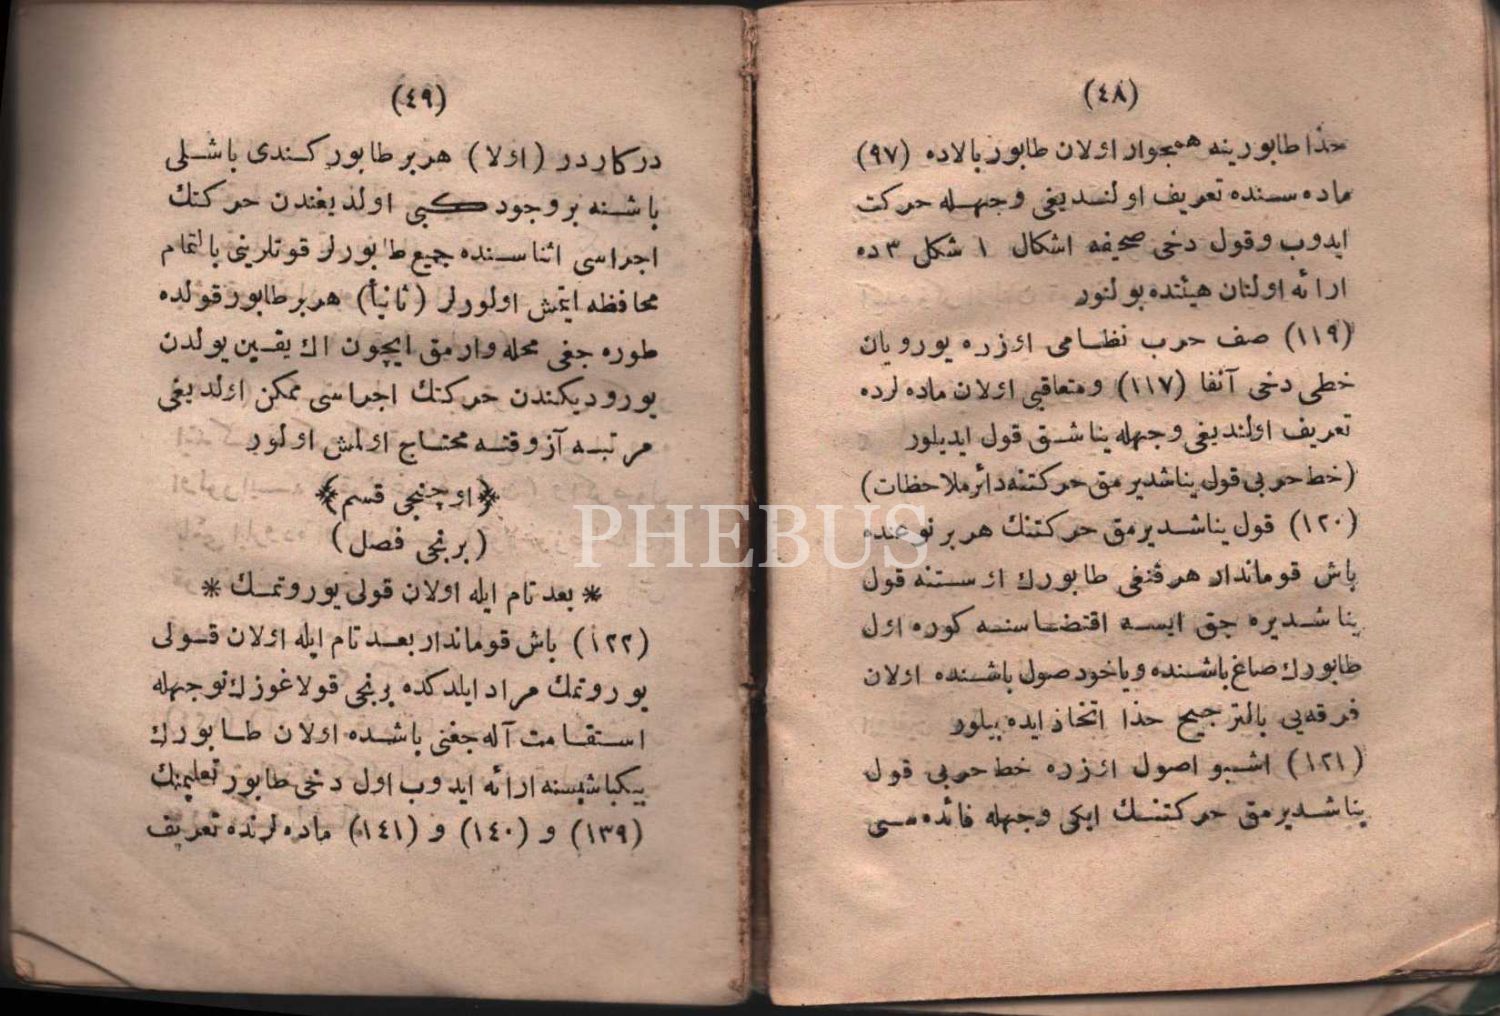 (٤٨)
حذا طابورینه همجوار اولان طابور بالاده (٩٧)
ماده سنده تعریف اولندیغی وجهله حرکت
ایدوب وقول دخی صحیفه اشکال ١ شکل ٣ ده
ارائه اولنان هیئتده بولنور
(١١٩) صف حرب نظامی اوزره یورویان
خطی دخی آنفا (١١٧) ومتعاقبی اولان ماده لرده
تعریف اولندیغی وجهله یناشق قول ایدیلور
(خط حربی قول یناشدیرمق حرکتنه دائر ملاحظات)
(١٢٠) قول یناشدیرمق حرکتنك هر بر نوعنده
باش قوماندار هر قنغی طابورك اوستنه قول
یناشدیره جق ایسه اقتضاسنه کوره اول
طابورك صاغ باشنده ویاخود صول باشنده اولان
فرقه یی بالترجیح حذا اتخاذ ایده بیلور
(١٢١) اشبو اصول اوزره خط حربی قول
یناشدیرمق حرکتنك ایکی وجهله فائده سی
(٤٩)
درکاردر (اولا) هر بر طابور کندی باشلی
باشنه بر وجود کبی اولدیغندن حرکتك
اجراسی اثناسنده جمیع طابورلر قوتلرینی بالتمام
محافظه ایتمش اولورلر (ثانیاً) هر بر طابور قولده
طوره جغی محله وارمق ایچون اك یقین یولدن
یورودیکندن حرکتك اجراسی ممکن اولدیغی
مرتبه آز وقته محتاج اولمش اولور
﴿اوچنجی قسم﴾
(برنجی فصل)
* بعد تام ایله اولان قولی یوروتمك *
(١٢٢) باش قوماندار بعد تام ایله اولان قولی
یوروتمك مراد ایلدکده برنجی قولاغوزك توجهله
استقامت آله جغنی باشده اولان طابورك
بیکباشیسنه ارائه ایدوب اول دخی طابور تعلیمنك
(١٣٩) و (١٤٠) و (١٤١) ماده لرنده تعریف
PHEBUS